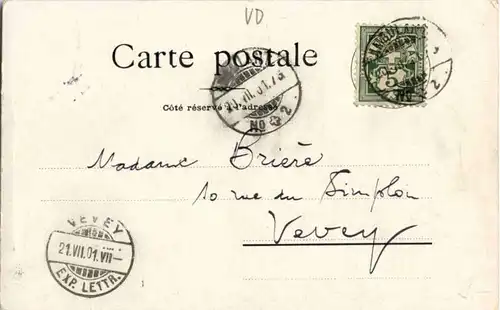 VD
Carte postale
Côté réservé à l'adresse
5
Madame Brière
10 rue du Simplon
Vevey
VEVEY
21.VII.01.VII—
EXP. LETTR.